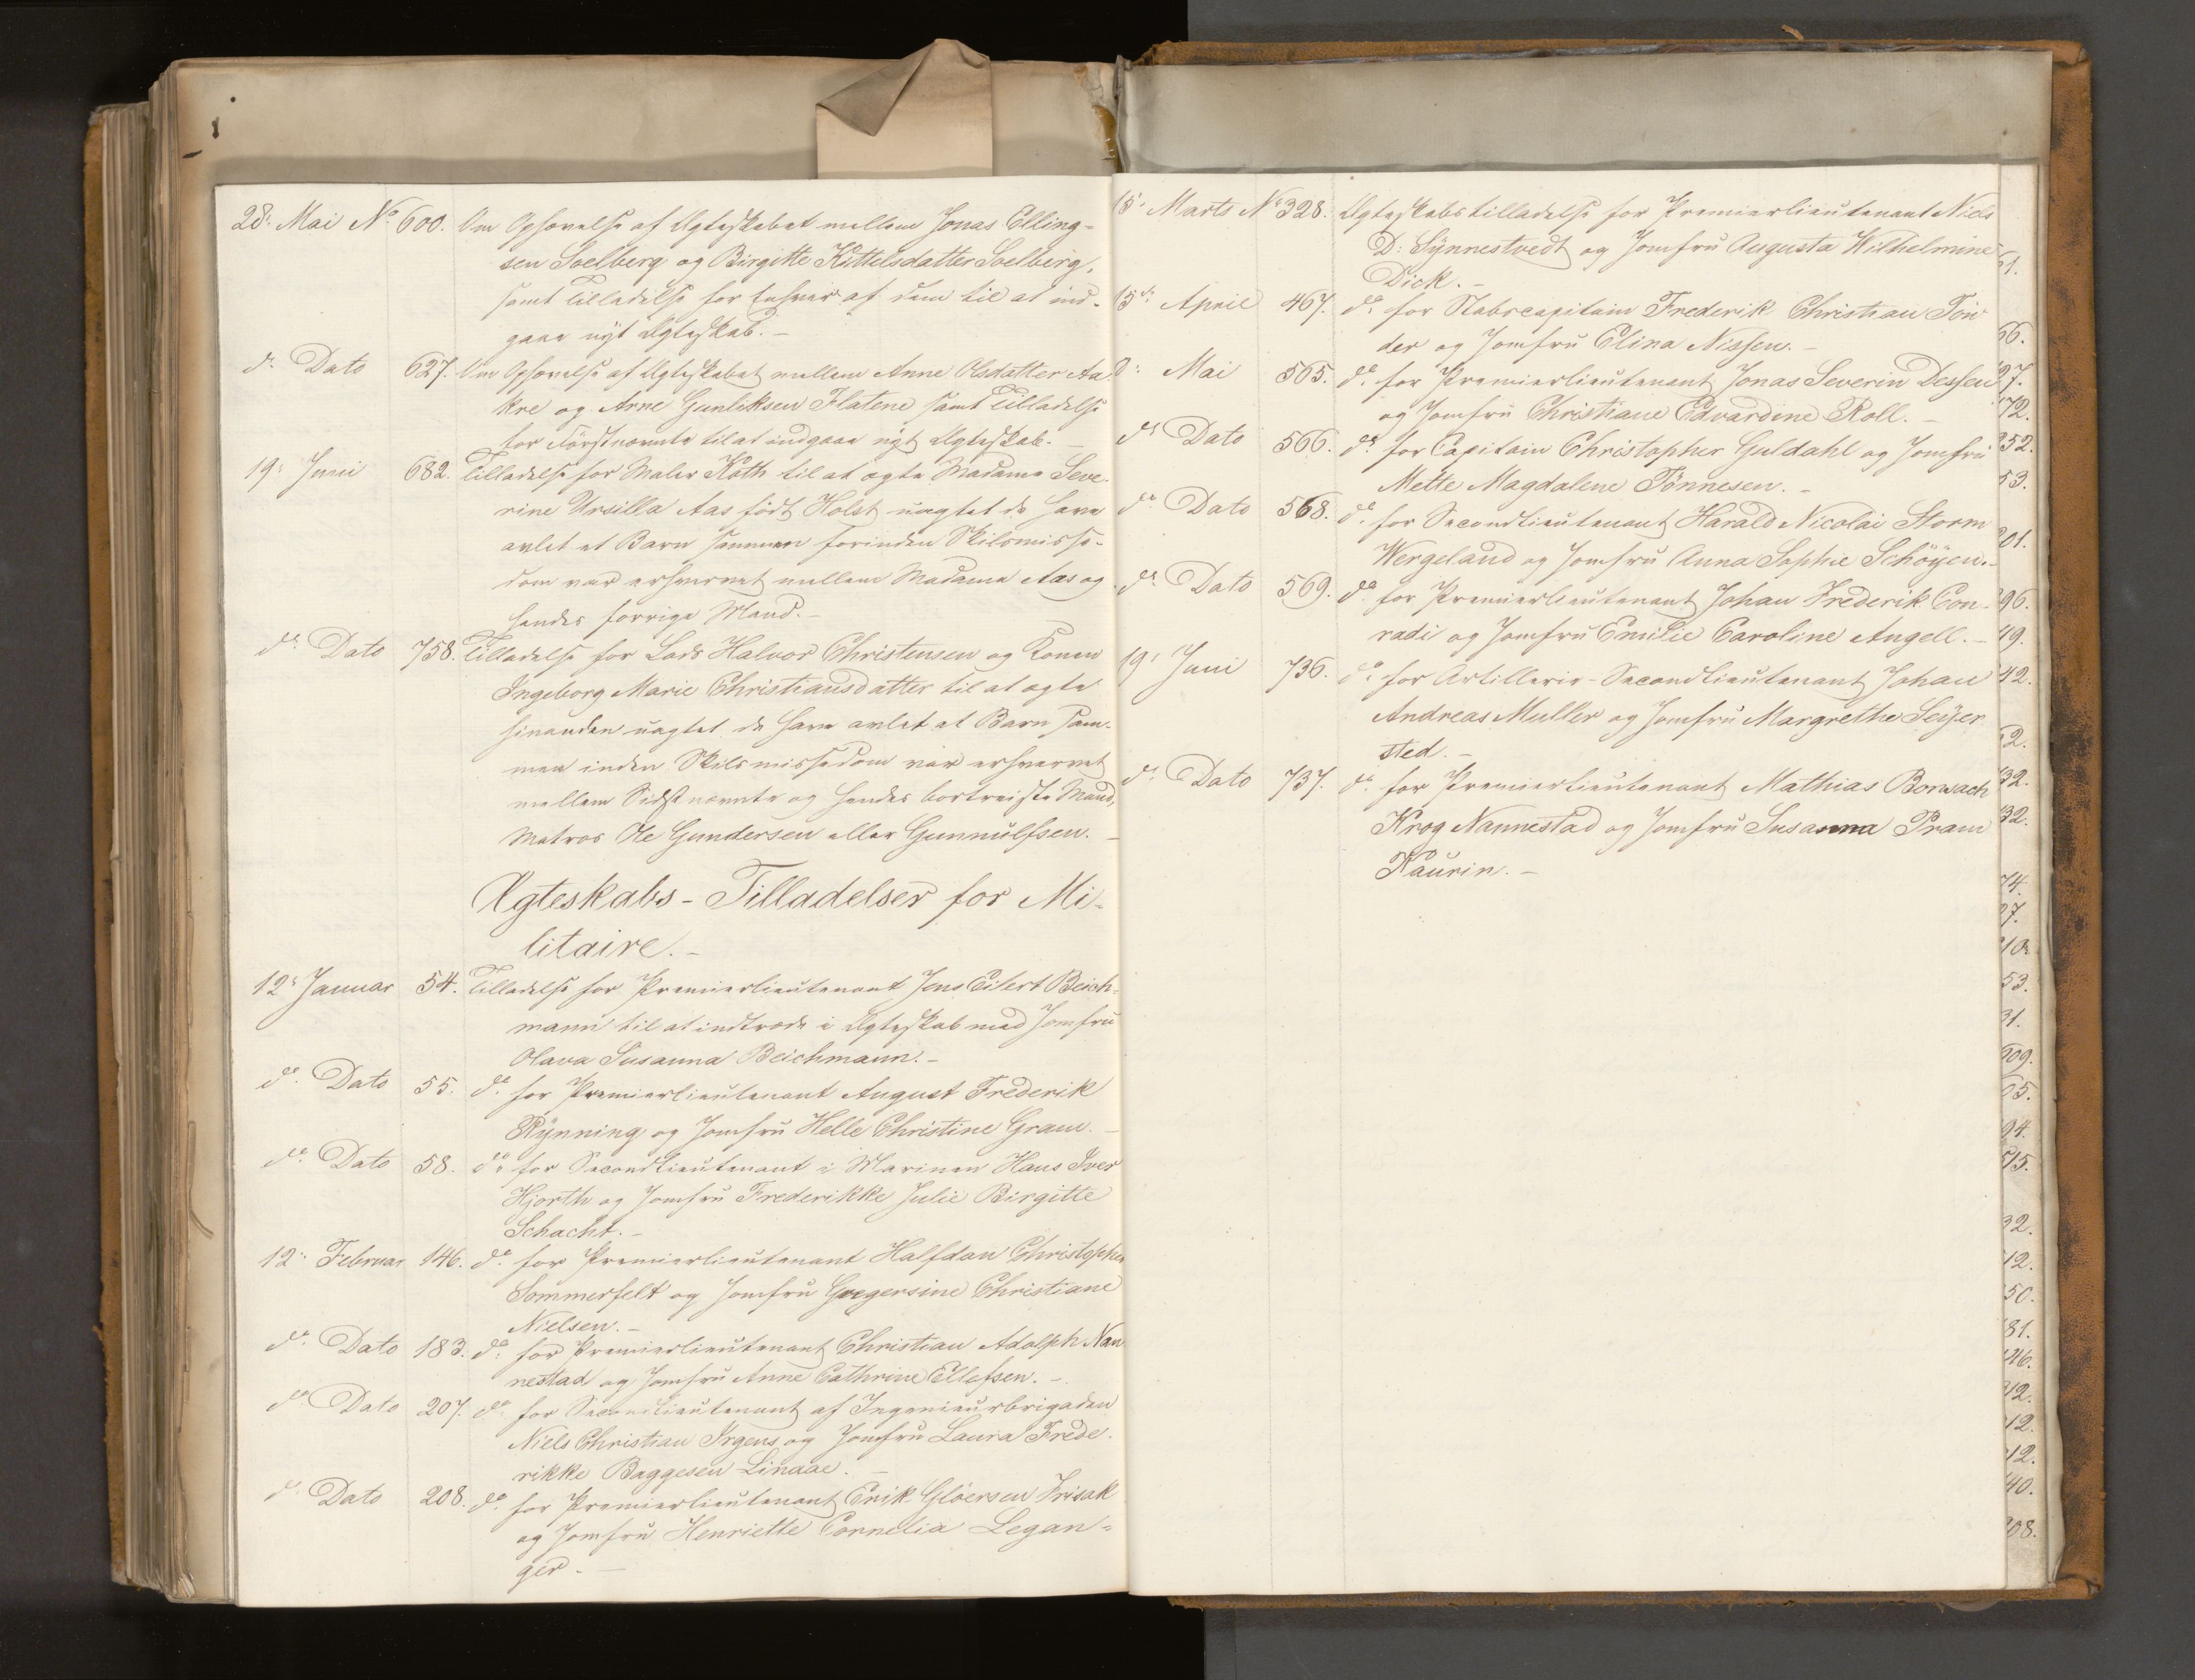 28. Mai No. 600. Om Ophævelse af Ægteskabet mellem Jonas Elling-
sen Soelberg og Birgitte Kittelsdatter Soelberg,
samt Tilladelse for Enhver af dem til at ind-
gaae nyt Ægteskab. -
do. Dato 627. Om Ophævelse af Ægteskabet mellem Anne Olsdatter Aa-
kre og Arne Gunleksen Flatene samt Tilladelse
for Førstnævnte til at indgaae nyt Ægteskab. -
19. Juni 682. Tilladelse for Maler Koth til at ægte Madame Seve-
rine Ursilla Aas født Holst uagtet de have
avlet et Barn sammen forinden Skilsmisse-
dom var erhvervet mellem Madame Aas og
hendes forrige Mand. -
do. Dato 758. Tilladelse for Lods Halvor Christensen og Konen
Ingeborg Marie Christiansdatter til at ægte
hinanden uagtet de have avlet et Barn sam-
men inden Skilsmissedom var erhvervet
mellem Sidstnævnte og hendes bortreiste Mand,
Matros Ole Gundersen eller Gunnulfsen. -
Ægteskabs-Tilladelser for Mi-
litaire. -
12. Januar 54. Tilladelse for Premierlieutenant Jens Eilert Beich-
mann til at indtræde i Ægteskab med Jomfru
Olava Susanna Beichmann. -
do. Dato 55. do. for Premierlieutenant August Frederik
Rÿnning og Jomfru Helle Christine Gram. -
do. Dato 58. do. for Secondlieutenant i Marinen Hans Iver
Hjorth og Jomfru Frederikke Julie Birgitte
Schacht. -
12. Februar 146. do. for Premierlieutenant Halfdan Christopher
Sommerfelt og Jomfru Gregersine Christiane
Nielsen. -
do. Dato 183. do. for Premierlieutenant Christian Adolph Nan-
nestad og Jomfru Anne Cathrine Ellefsen. -
do. Dato 207. do. for Secondlieutenant af Ingenieurbrigaden
Niels Christian Irgens og Jomfru Laura Frede-
rikke Baggesen Linaae. -
do. Dato 208. do. for Premierlieutenant Erik Glöersen Frisak
og Jomfru Henriette Cornelia Legan-
ger. -
15. Marts No. 328. Ægteskabstilladelse for Premierlieutenant Niels
D: Sÿnnestvedt og Jomfru Augusta Wilhelmine
Dick. -
15. April 467. do. for Stabscapitain Frederik Christian Tön-
der og Jomfru Elina Nissen. -
Mai 565. do. for Premierlieutenant Jonas Severin Dessen
og Jomfru Christiane Edvardine Roll. -
do. Dato 566. do. for Capitain Christopher Guldahl og Jomfru
Mette Magdalene Tönnesen. -
do. Dato 568. do. for Secondlieutenant Harald Nicolai Storm
Wergeland og Jomfru Anna Sophie Schöyen. -
do. Dato 569. do. for Premierlieutenant Johan Frederik Con-
radi og Jomfru Emilie Caroline Angell. -
19. Juni 736. do. for Artillerie-Secondlieutenant Johan
Andreas Muller og Jomfru Margrethe Seÿer
sted. -
do. Dato 737. do. for Premierlieutenant Mathias Bonsach
Krog Nannestad og Jomfru Susanna Pram
Kaurin. -